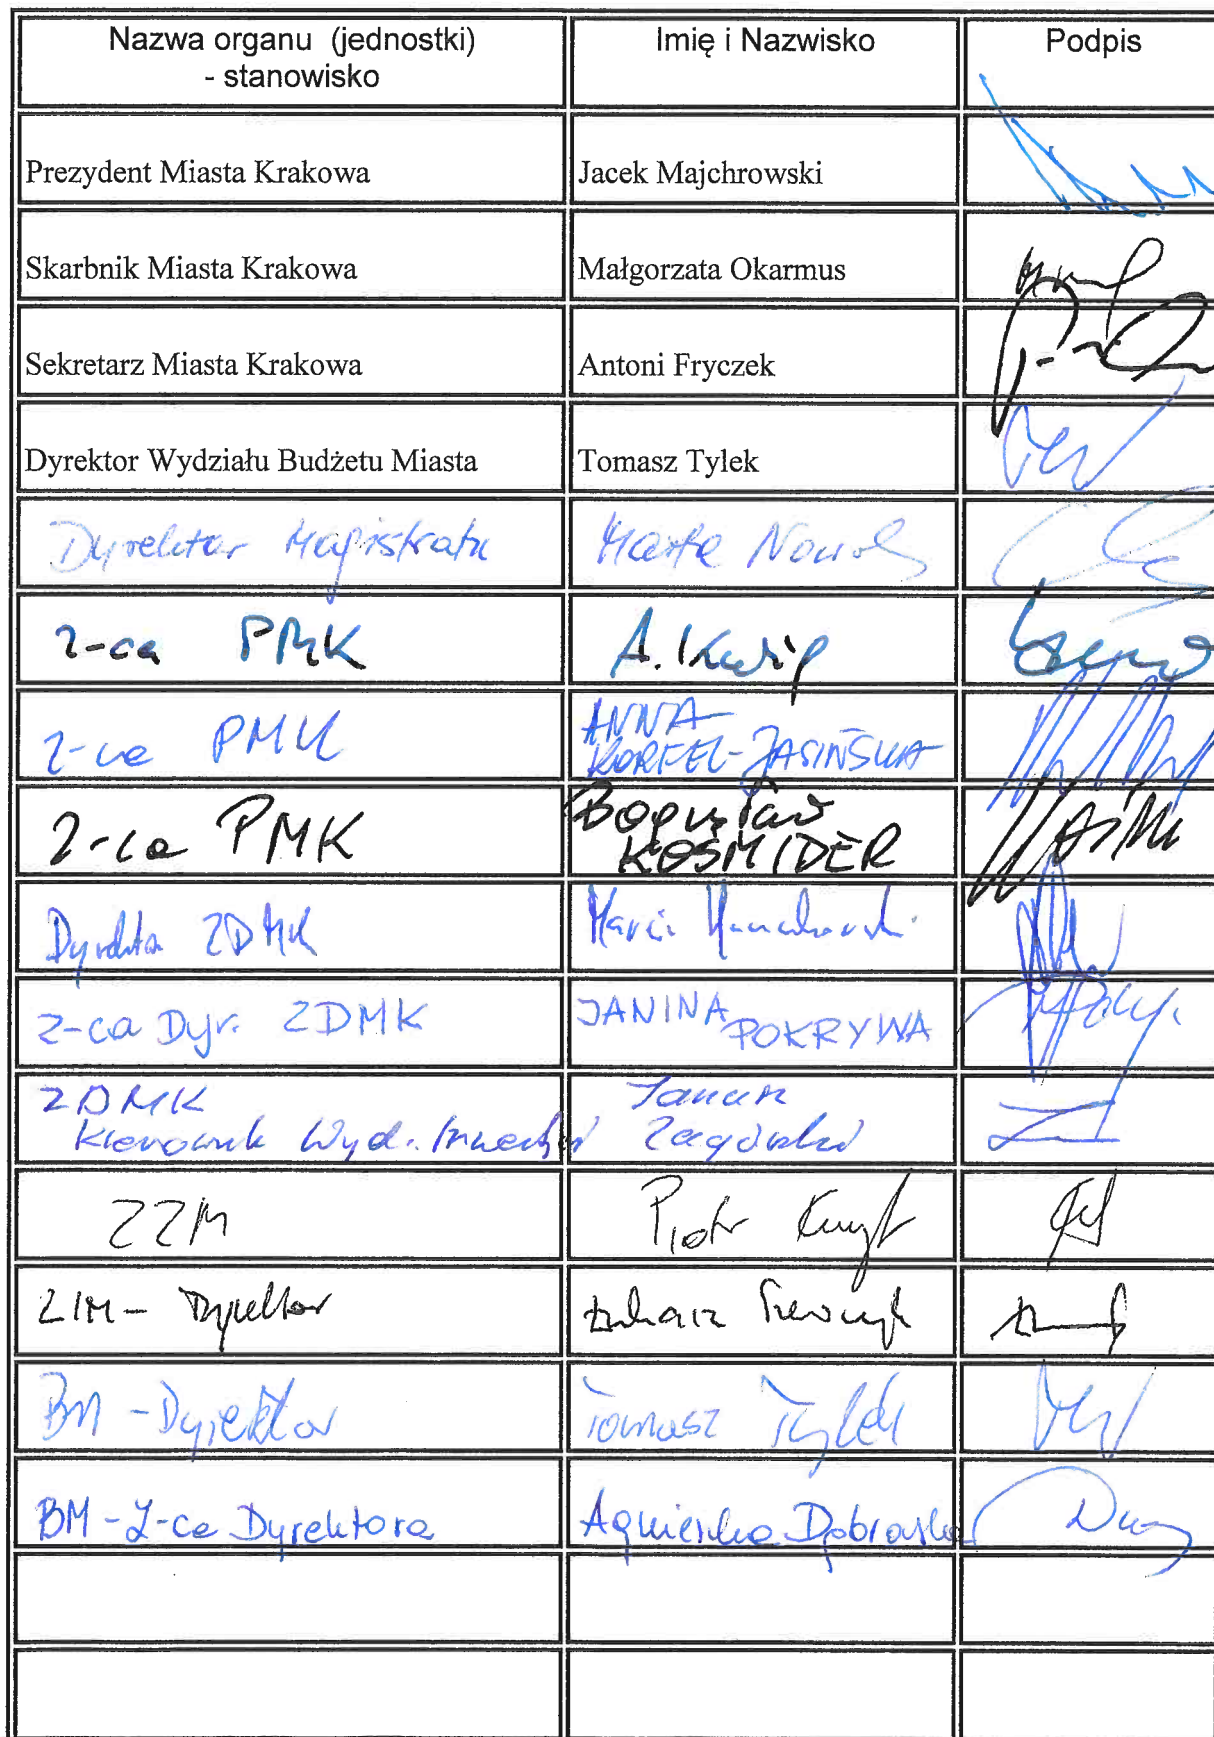 Nazwa organu (jednostki) Imię i Nazwisko Podpis
- stanowisko
Prezydent Miasta Krakowa Jacek Majchrowski
Skarbnik Miasta Krakowa Małgorzata Okarmus
Sekretarz Miasta Krakowa Antoni Fryczek
Dyrektor Wydziału Budżetu Miasta Tomasz Tylek
Dyrektor Magistratu Marta Nowak
Z-ca PMK A. Kulig
Z-ca PMK ANNA
KORFEL-JASIŃSKA
Z-ca PMK Bogusław
KOŚMIDER
Dyrektor ZDMK Marcin
Z-ca Dyr. ZDMK JANINA POKRYWA
ZDMK Janusz
Kierownik Wyd. Inwestycji Zagórski
ZZM Piotr
ZIM - Dyrektor Łukasz Szewczyk
BM - Dyrektor Tomasz Tylek
BM - Z-ca Dyrektora Agnieszka Dąbrowska